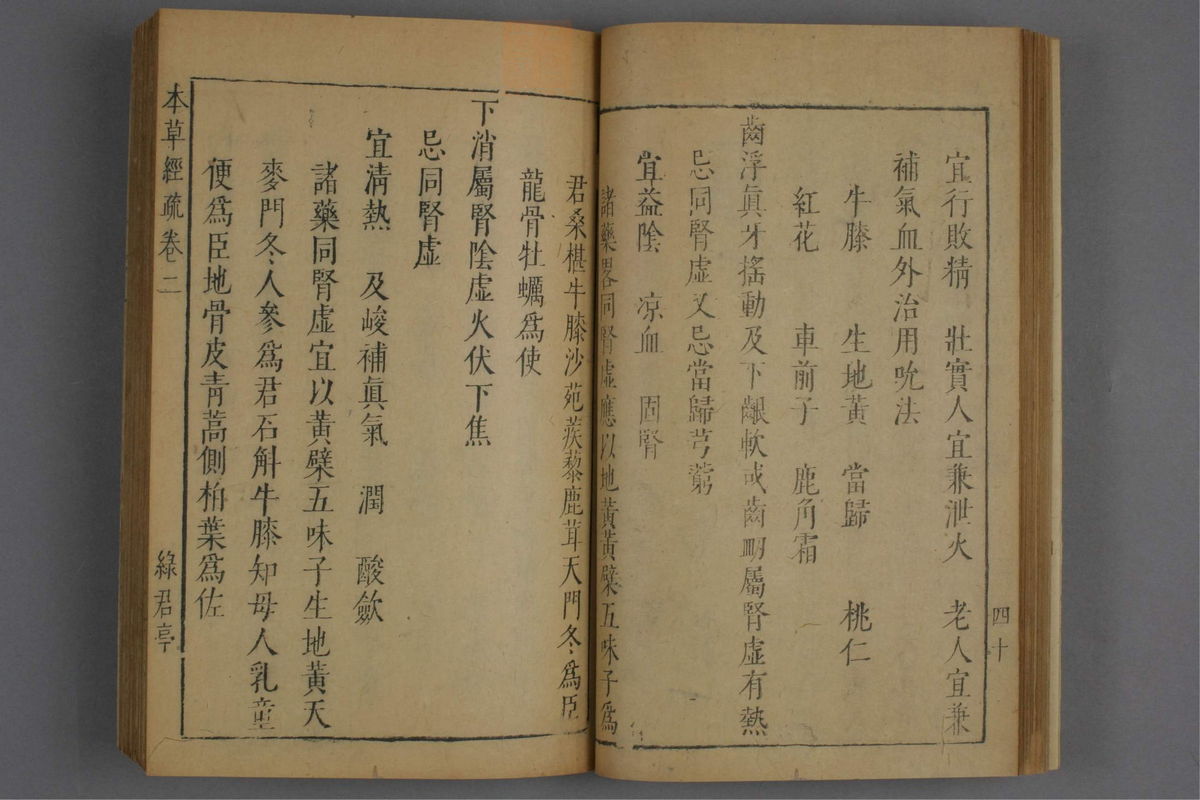 四十
宜行敗精　壯實人宜兼泄火　老人宜兼
補氣血外治用吮法
牛膝　生地黃　當歸　桃仁
紅花　車前子　鹿角霜
齒浮眞牙搖動及下齦軟或齒衂屬腎虛有熱
忌同腎虛又忌當歸芎藭
宜益陰　凉血　固腎
諸藥畧同腎虛應以地黃黃櫱五味子爲
君桑椹牛膝沙苑蒺藜鹿茸天門冬爲臣
龍骨牡蠣爲使
下消屬腎陰虛火伏下焦
忌同腎虛
宜清熱　及峻補眞氣　潤　酸歛
諸藥同腎虛宜以黃櫱五味子生地黃天
麥門冬人參爲君石斛牛膝知母人乳童
便爲臣地骨皮靑蒿側柏葉爲佐
本草經疏卷二　綠君亭